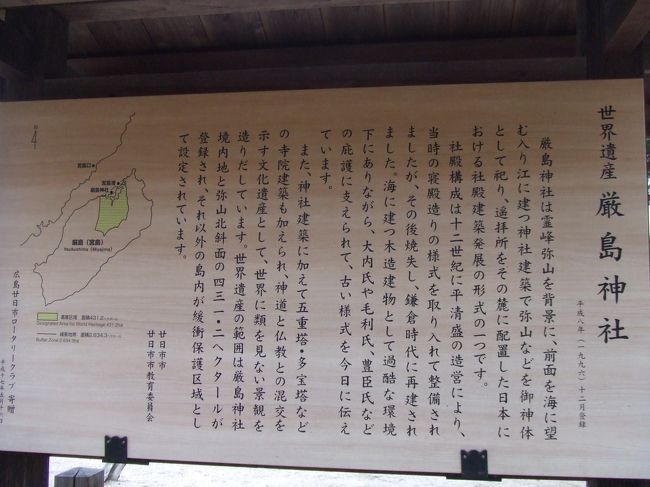 世界遺産 厳島神社
平成八年(一九九六)十二月登録
厳島神社は霊峰弥山を背景に、前面を海に望
む入り江に建つ神社建築で弥山などを御神体
として祀り、遥拝所をその麓に配置した日本に
おける社殿建築発展の形式の一つです。
社殿構成は十二世紀に平清盛の造営により、
当時の寝殿造りの様式を取り入れて整備され
ましたが、その後焼失し、鎌倉時代に再建され
ました。海に建つ木造建物として過酷な環境
下にありながら、大内氏や毛利氏、豊臣氏など
の庇護に支えられて、古い様式を今日に伝え
ています。
また、神社建築に加えて五重塔・多宝塔など
の寺院建築も加えられ、神道と仏教との混交を
示す文化遺産として、世界に類を見ない景観を
造りだしています。世界遺産の範囲は厳島神社
境内地と弥山北斜面の四三一・二ヘクタールが
登録され、それ以外の島内が緩衝保護区域とし
て設定されています。
廿日市市
廿日市市教育委員会
宮島口
宮島港
厳島神社
厳島(宮島)
Itsukushima (Miyajima)
遺産区域 面積431.2ヘクタール
Designated Area for World Heritage 431.2ha
緩衝地帯 面積2,634.3ヘクタール
Buffer Zone 2,634.3ha
広島廿日市ロータリークラブ 寄贈